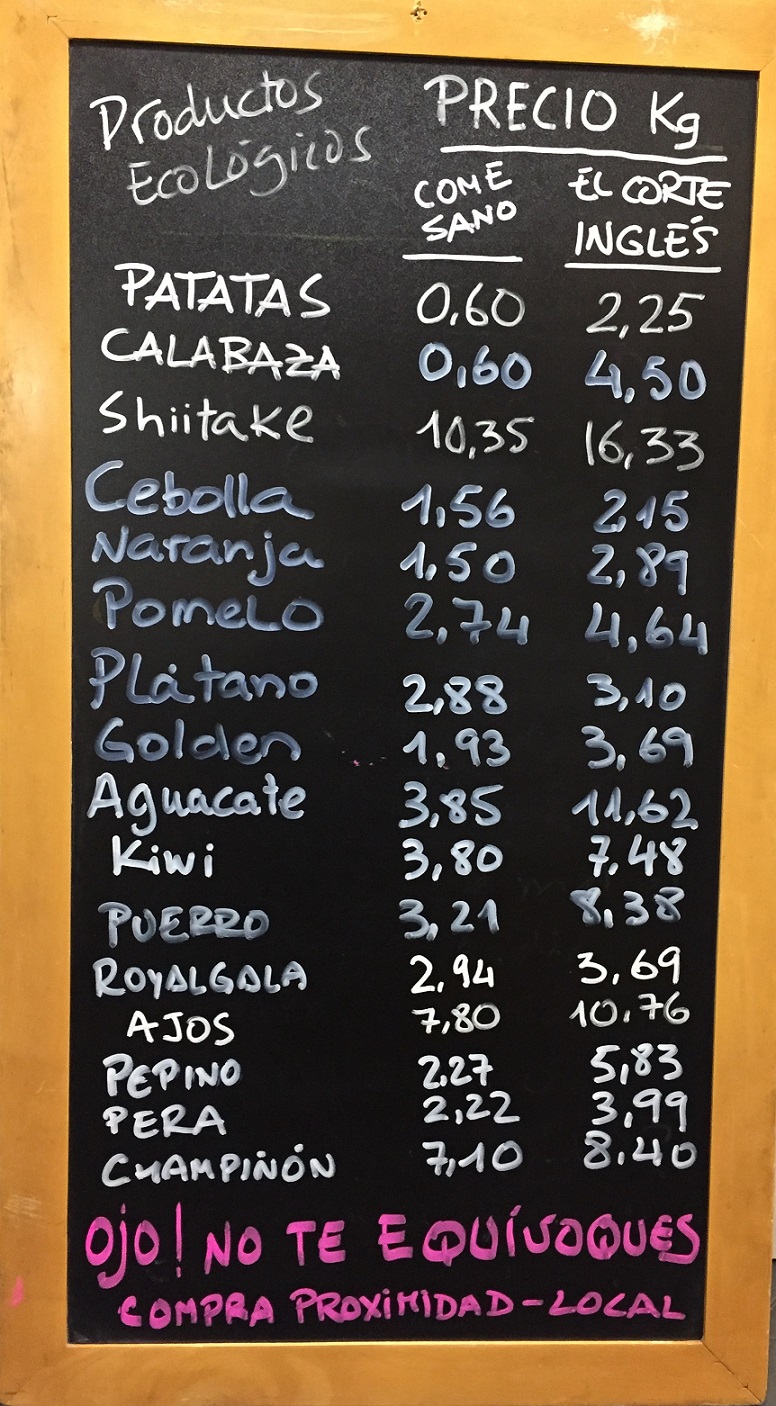 Productos PRECIO Kg
Ecológicos
COME SANO EL CORTE INGLÉS
PATATAS 0,60 2,25
CALABAZA 0,60 4,50
Shiitake 10,35 16,33
Cebolla 1,56 2,15
Naranja 1,50 2,89
Pomelo 2,74 4,64
Plátano 2,88 3,10
Golden 1,93 3,69
Aguacate 3,85 11,62
Kiwi 3,80 7,48
PUERRO 3,21 8,38
ROYALGALA 2,94 3,69
AJOS 7,80 10.76
PEPINO 2,27 5,83
PERA 2,22 3,99
CHAMPIÑÓN 7,10 8.40
Ojo! NO TE EQUÍVOQUES
COMPRA PROXIMIDAD-LOCAL